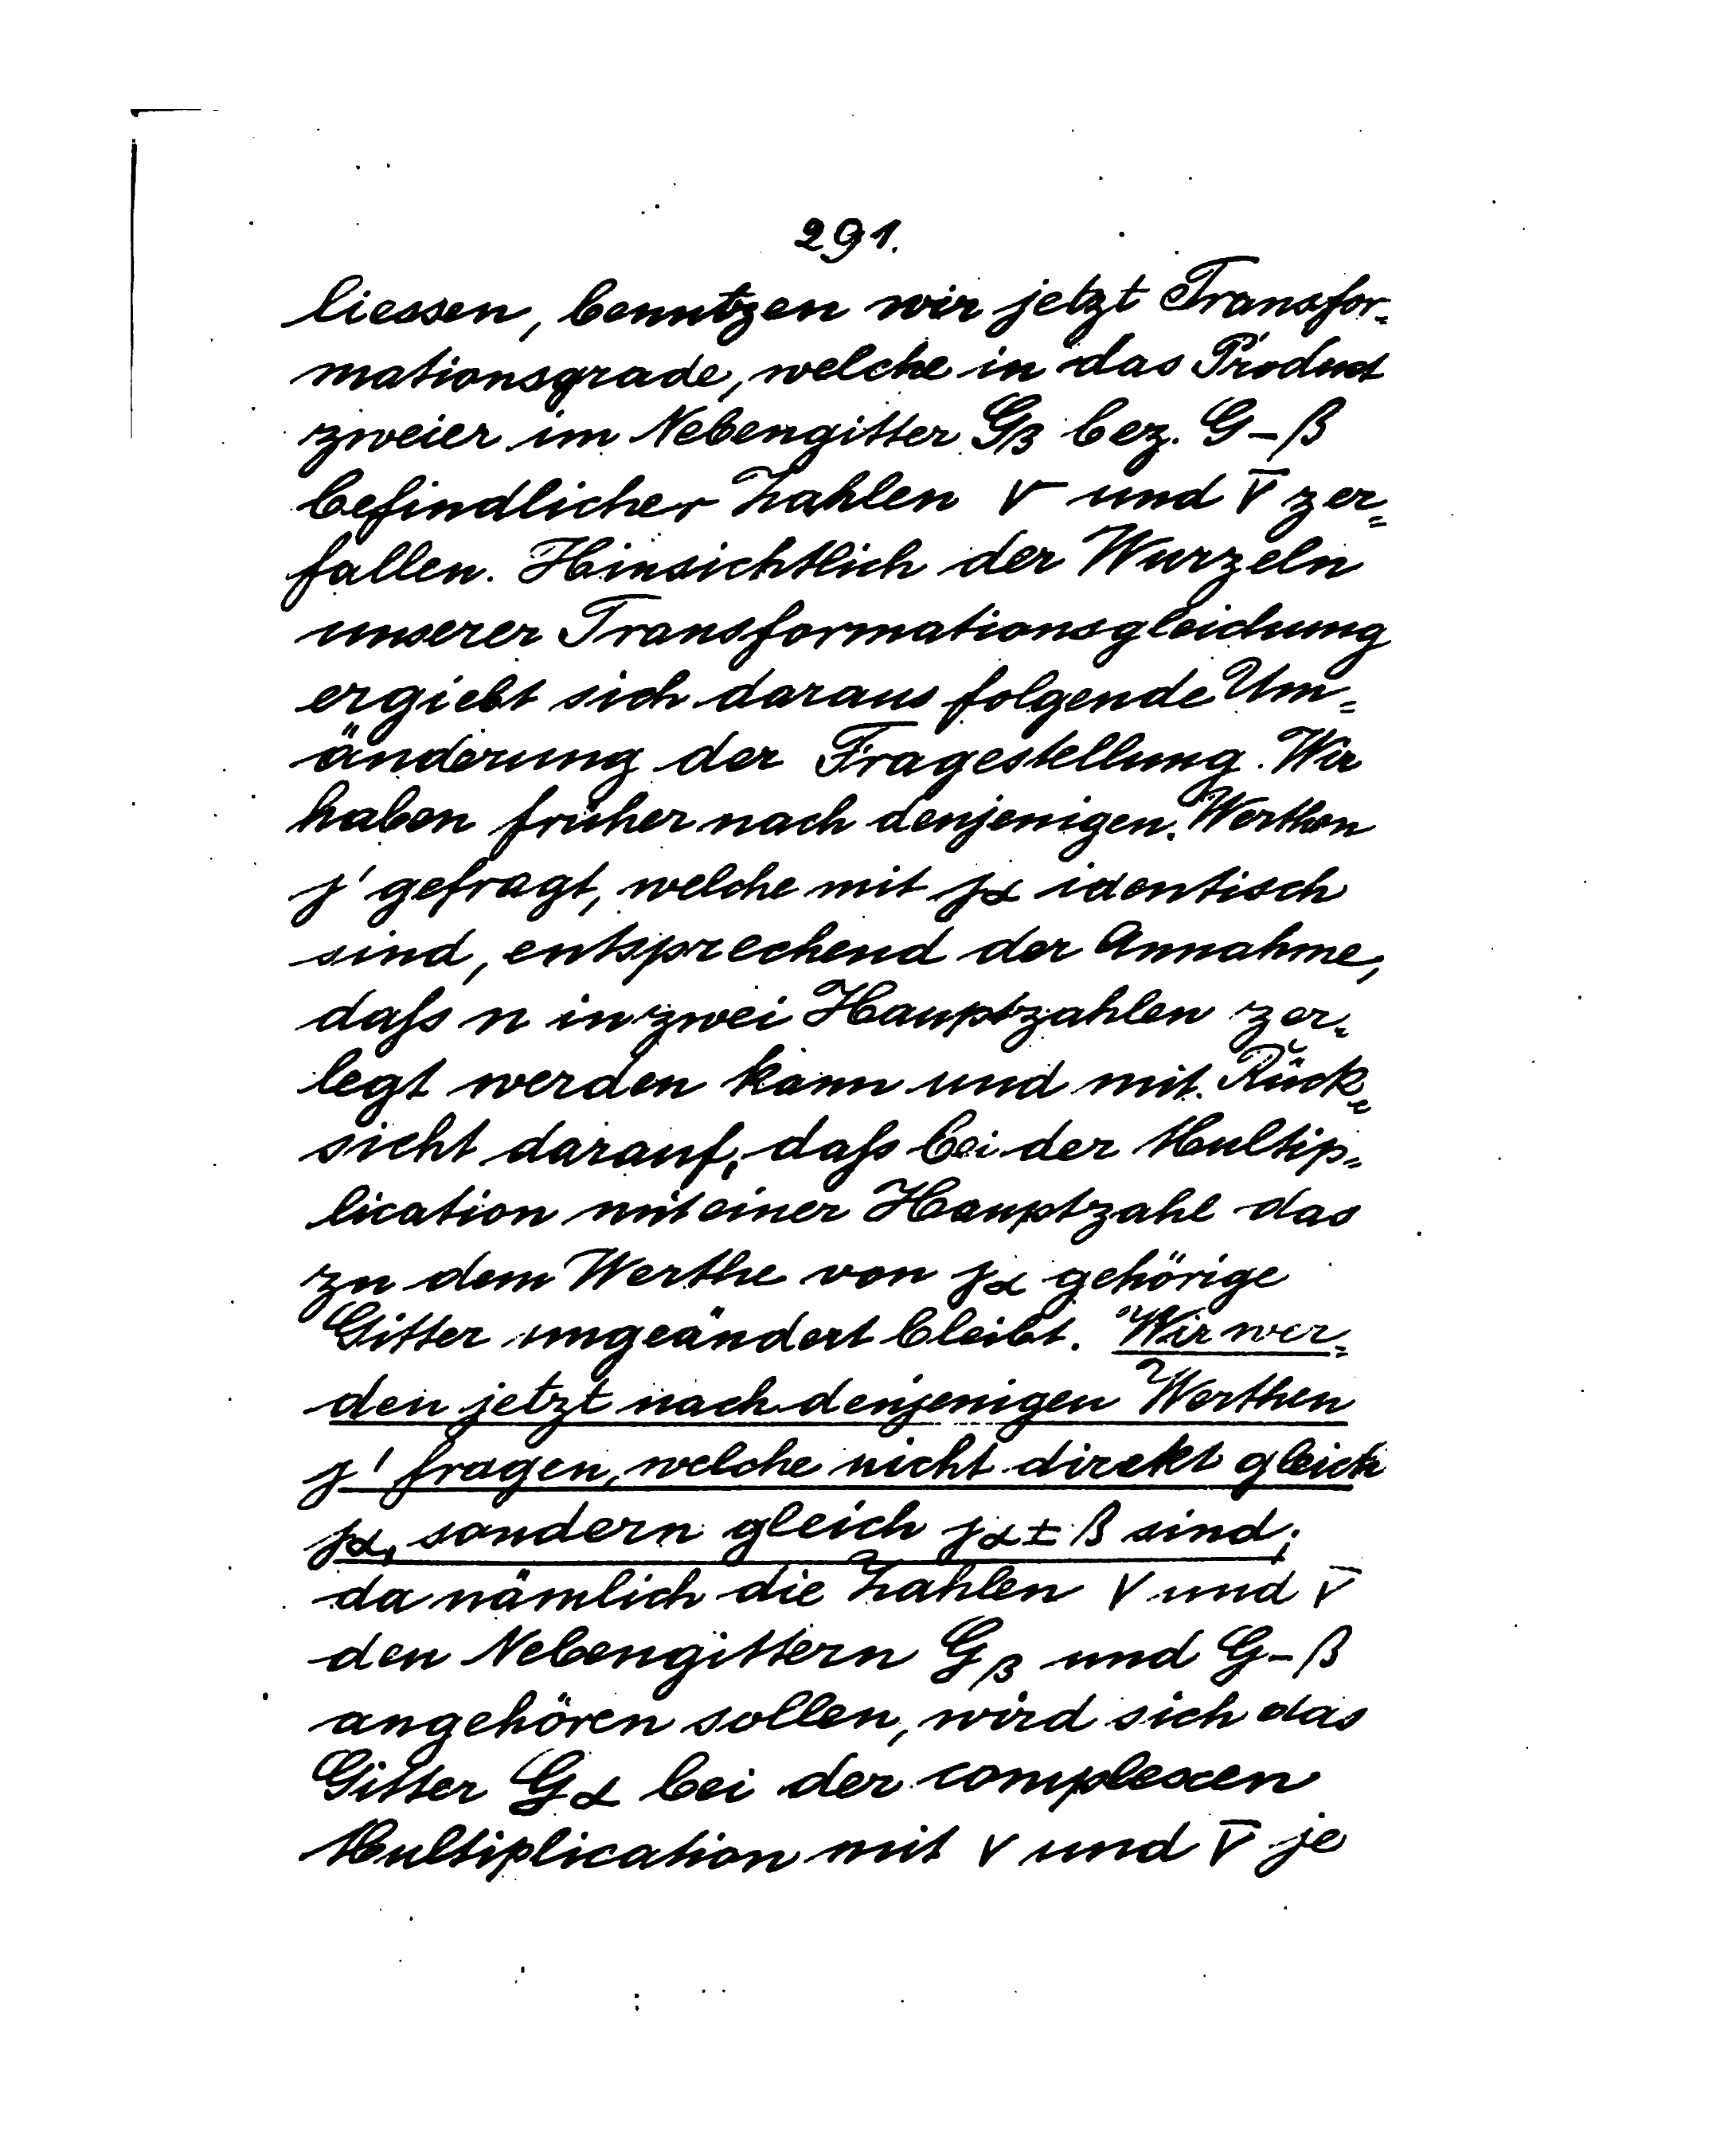 291.
liessen, benutzen wir jetzt Transfor=
mationsgrade, welche in das Product
zweier im Nebengitter Gβ bez. G-β
befindlicher Zahlen ν und ν̅ zer=
fallen. Hinsichtlich der Wurzeln
unserer Transformationsgleichung
ergiebt sich daraus folgende Um=
änderung der Fragestellung. Wir
haben früher nach denjenigen Werthen
j' gefragt, welche mit jα identisch
sind, entsprechend der Annahme,
daſs n in zwei Hauptzahlen zer=
legt werden kann und mit Rück=
sicht darauf, daſs bei der Multip=
lication mit einer Hauptzahl das
zu dem Werthe von jα gehörige
Gitter ungeändert bleibt. Wir wer=
den jetzt nach denjenigen Werthen
j' fragen, welche nicht direkt gleich
jα, sondern gleich jα±β sind;
da nämlich die Zahlen ν und ν̅
den Nebengittern Gβ und G-β
angehören sollen, wird sich das
Gitter Gα bei der complexen
Multiplication mit ν und ν̅ je